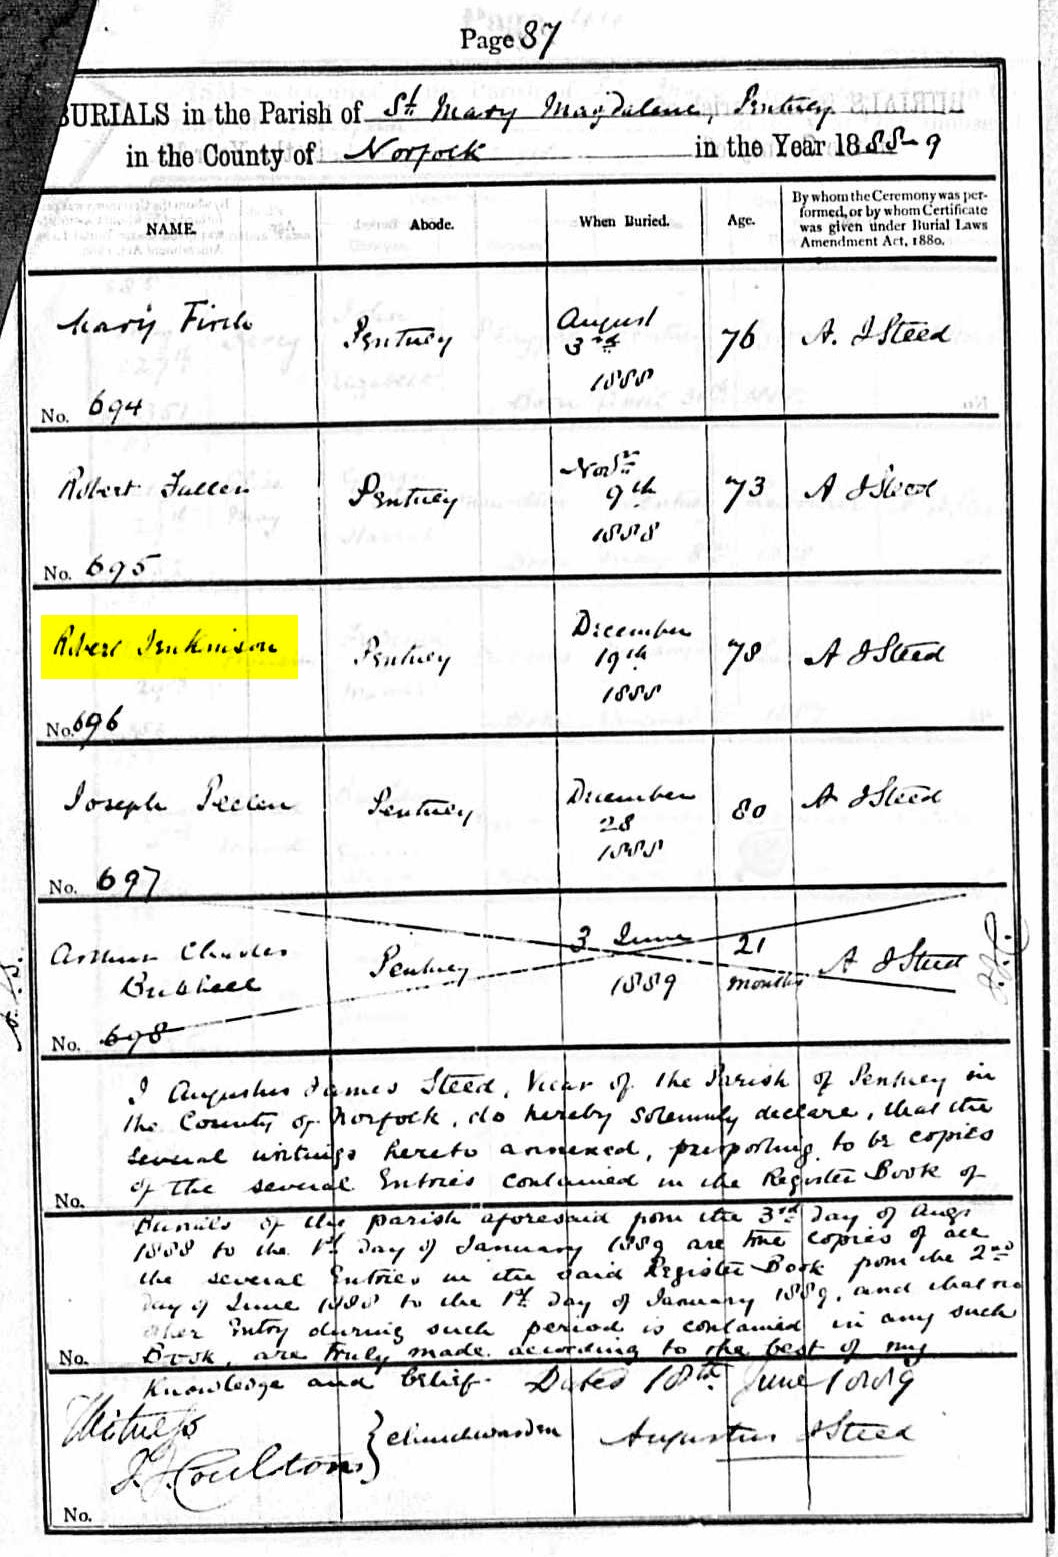 Page 87
BURIALS in the Parish of St. Mary Magdalene, Pentney
in the County of Norfolk in the Year 1888-9
NAME.
Abode.
When Buried.
Age.
By whom the Ceremony was per-
formed, or by whom Certificate
was given under Burial Laws
Amendment Act, 1880.
Mary Finch
Pentney
August
3rd
1888
76
A. J Steed
No. 694
Robert Fuller
Pentney
Novr
9th
1888
73
A J Steed
No. 695
Robert Jenkinson
Pentney
December
19th
1888
78
A J Steed
No. 696
Joseph
Pentney
December
28
1888
80
A J Steed
No. 697
Arthur Charles
Pentney
3 June
1889
21
months
A J Steed
No. 698
I Augustus James Steed, Vicar of the Parish of Pentney in
the County of Norfolk, do hereby solemnly declare, that the
several writings hereto annexed, purporting to be copies
of the several Entries contained in the Register Book of
No.
Burials of the parish aforesaid from the 3rd day of Augt
1888 to the 1st day of January 1889 are true copies of all
the several Entries in the said Register Book from the 2nd
day of June 1888 to the 1st day of January 1889, and that no
other Entry during such period is contained in any such
No.
Book, are truly made according to the best of my
knowledge and belief. Dated 18th June 1889
Witness
J. J. Coulton } Churchwarden Augustus J Steed
No.